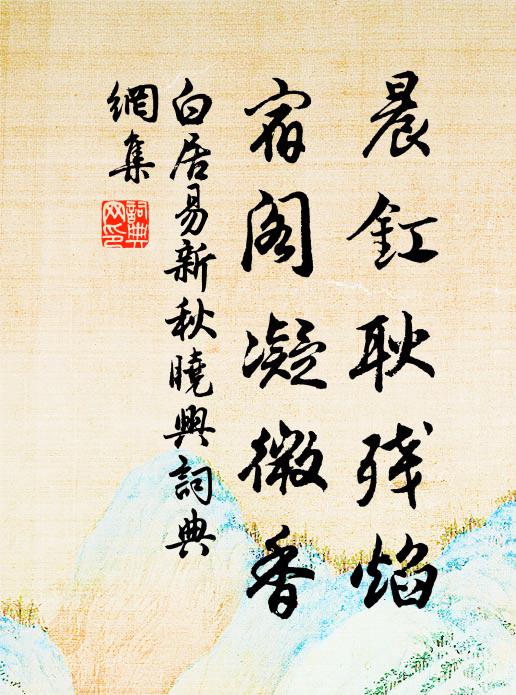 晨釭耿残焰
宿阁凝微香
白居易新秋曉興詞典
網集
詞典網印